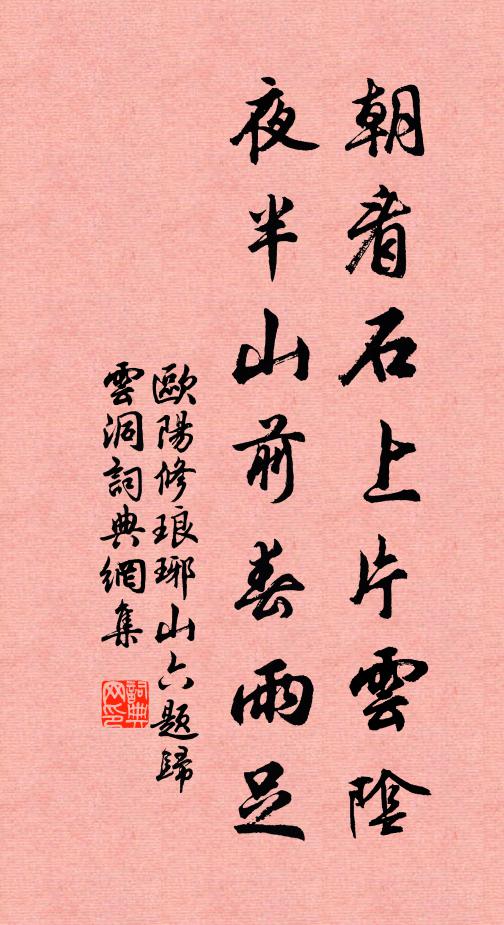 朝看石上片雲陰
夜半山前春雨足
歐陽修琅琊山六題歸
雲洞詞典網集
詞典网印